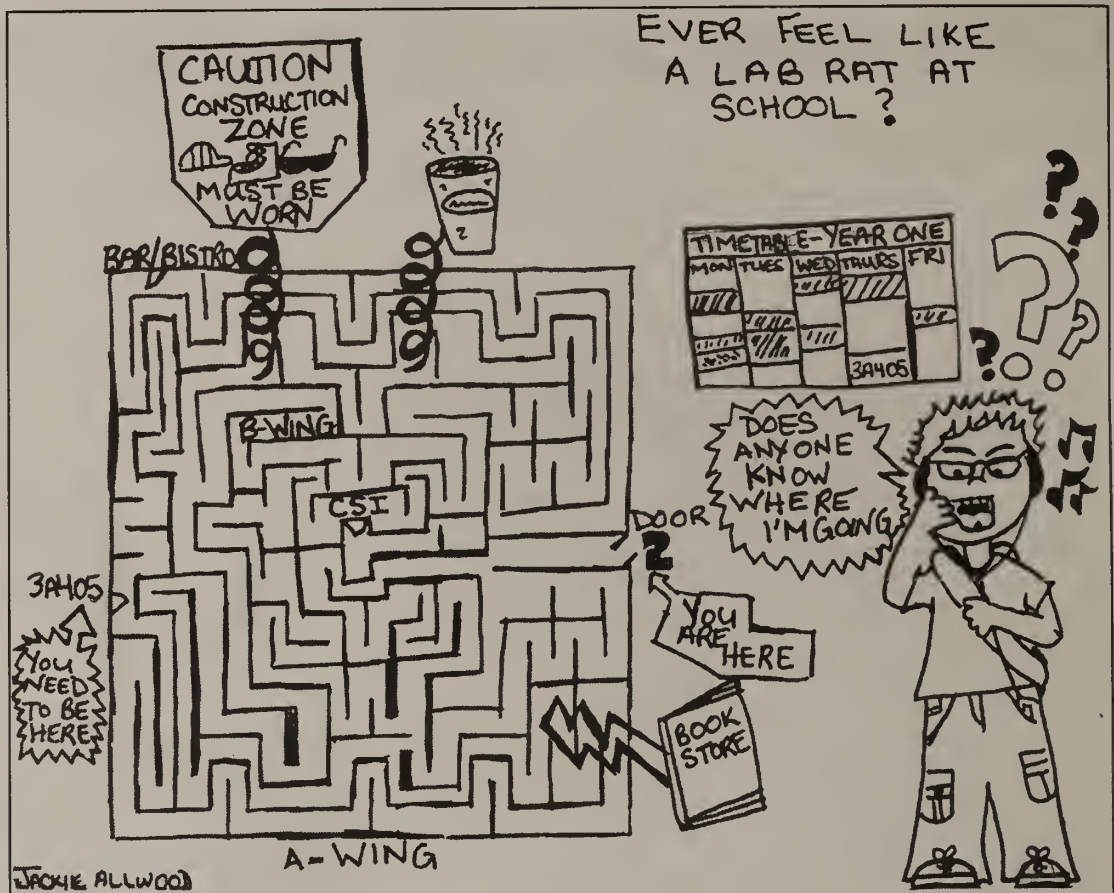 EVER FEEL LIKE
A LAB RAT AT
SCHOOL?
CAUTION
CONSTRUCTION
ZONE
MUST BE
WORN
BAR/BISTRO
TIMETABLE-YEAR ONE
MON TUES WED THURS FRI
3A405
B-WING
CSI
DOES
ANYONE
KNOW
WHERE
I'M GOING
DOOR
2
3A405
YOU
NEED
TO BE
HERE
YOU
ARE
HERE
BOOK
STORE
A-WING
JACKIE ALLWOOD